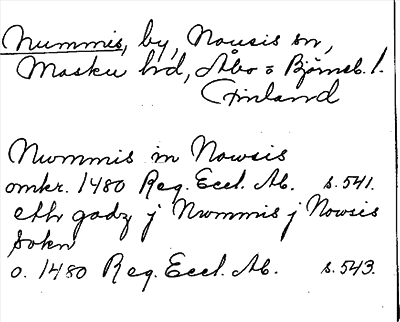 Nummis, by, Nousis sn,
Masku hd, Åbo o Björneb. l.
Finland
Nwmmis in Nowsis
omkr. 1480 Reg. Eccl. Ab. s. 541.
eth godz j Nwmmis j Nowsis
Sokn
o. 1480 Reg. Eccl. Ab. s. 543.